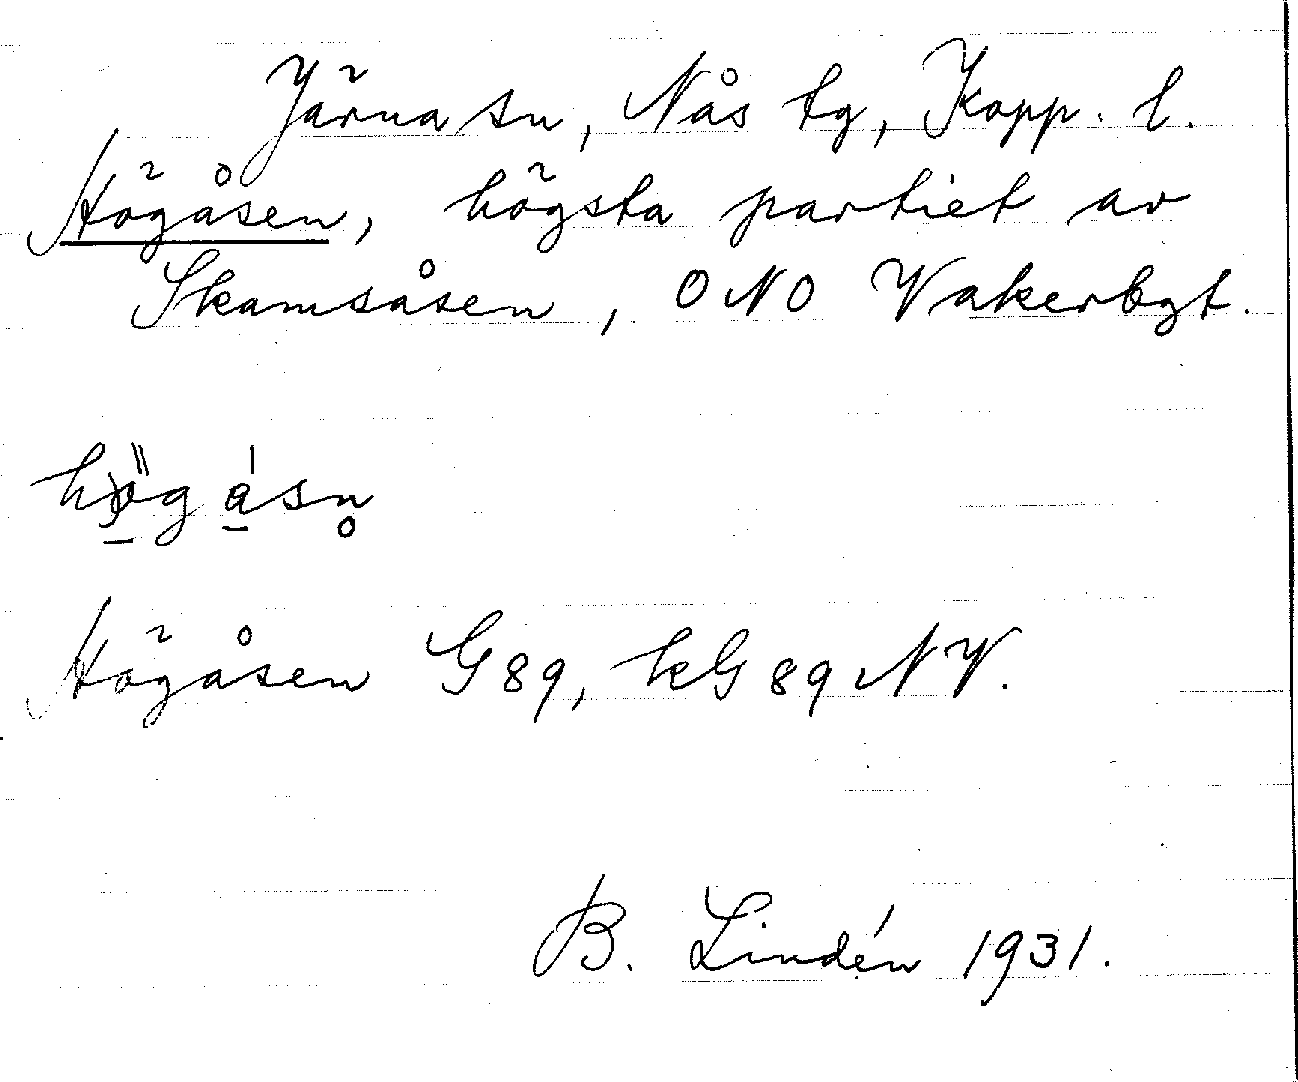 Järna sn, Nås tg, Kopp. l.
Högåsen, högsta partiet av
Skamsåsen, ONO Vakerbyt.
hög åsn̥
Högåsen G89, kG89NV.
B. Lindén 1931.